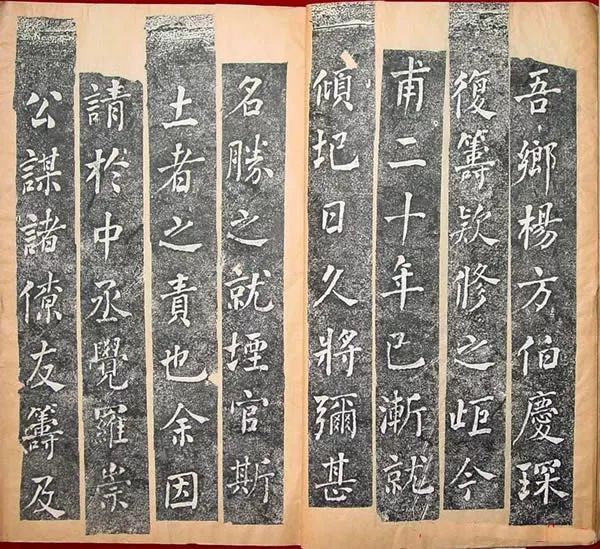 吾鄉楊方伯慶琛
復籌欵修之歫今
甫二十年已漸就
傾圮日久將彌甚
名勝之就堙官斯
土者之責也余因
請於中丞覺羅崇
公謀諸僚友籌及